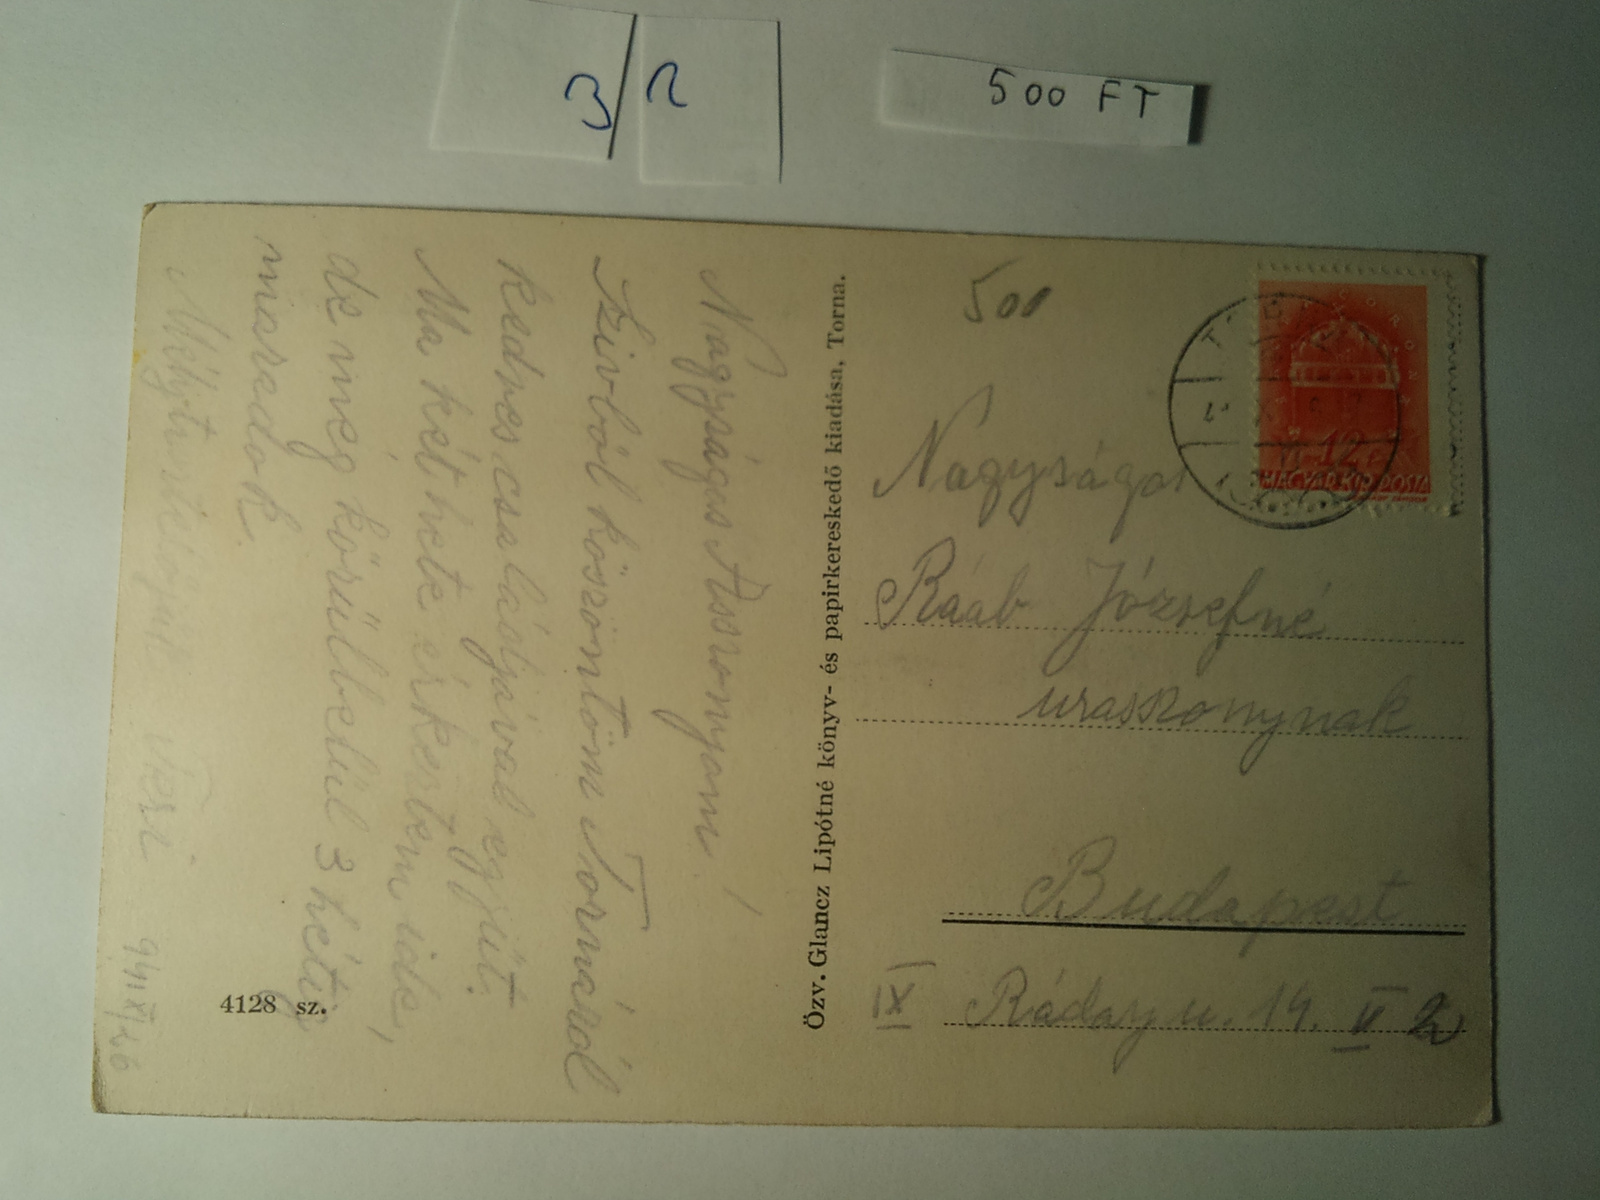 3/2
500 FT
Nagyságos Asszonyom!
Szivből köszöntöm Tornáról
kedves családjával együt.
Ma két hete érkertem ide,
de még körülbedül 3 hétig
maradok.
Teri
941 XI/26
4128 sz.
Özv. Glancz Lipótné könyv- és papirkereskedő kiadása, Torna.
500
12
MAGYAR KIR. POSTA
Nagyságos
Ráab Józsefné
uraszonynak
Budapest
IX Ráday u. 14. II 2